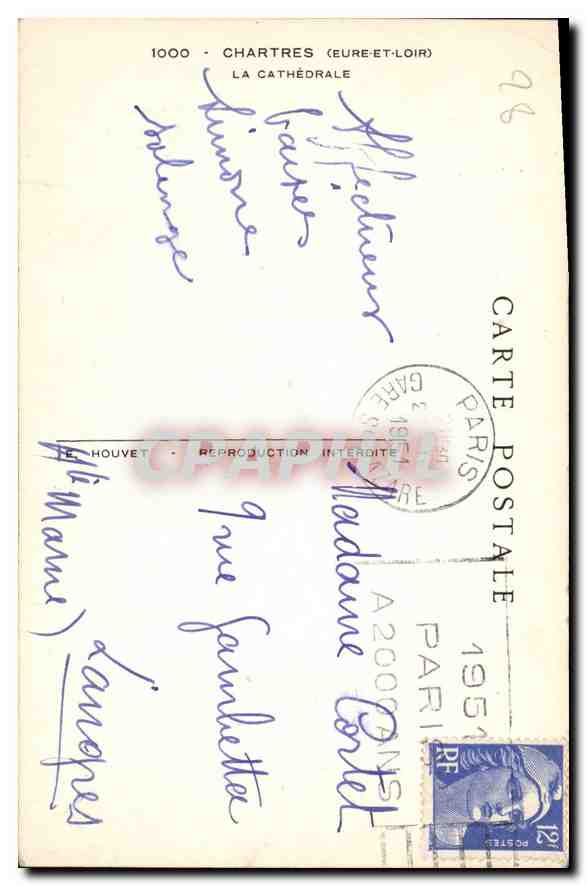 1000 - CHARTRES (EURE-ET-LOIR)
LA CATHÉDRALE
98
Affectueux
baisers
Simone
Solange
CARTE POSTALE
E. HOUVET - REPRODUCTION INTERDITE
CPAPHIL
PARIS
GARE ST LAZARE
1951
1951
PARIS
A 2000 ANS
RF
POSTES
12F
Madame Cortet
9 rue Gambetta
Langres
(Hte Marne)